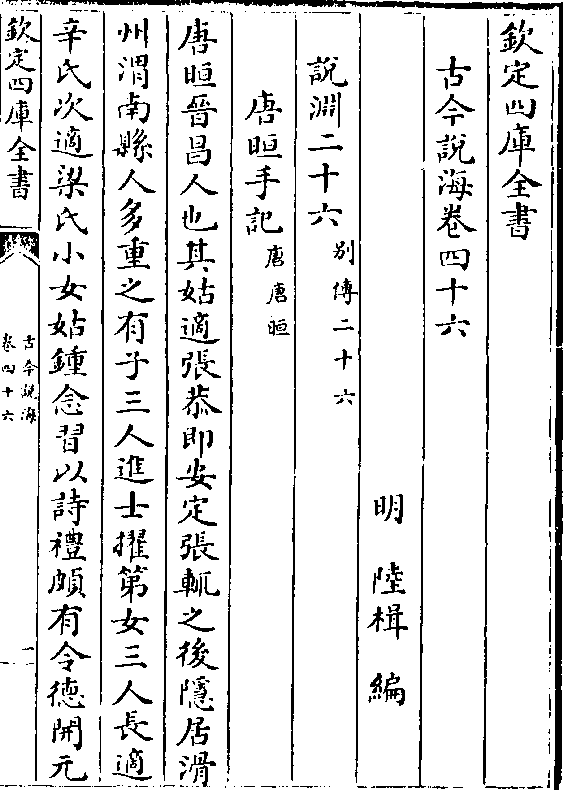 欽定四庫全書
古今說海卷四十六
明 陸楫 編
說淵二十六 别傳二十六
唐晅手記 唐唐晅
唐晅晉昌人也其姑適張恭即安定張軏之後隱居滑
州渭南縣人多重之有子三人進士擢第女三人長適
辛氏次適梁氏小女姑鍾念習以詩禮頗有令德開元
欽定四庫全書
古今說海
卷四十六
一